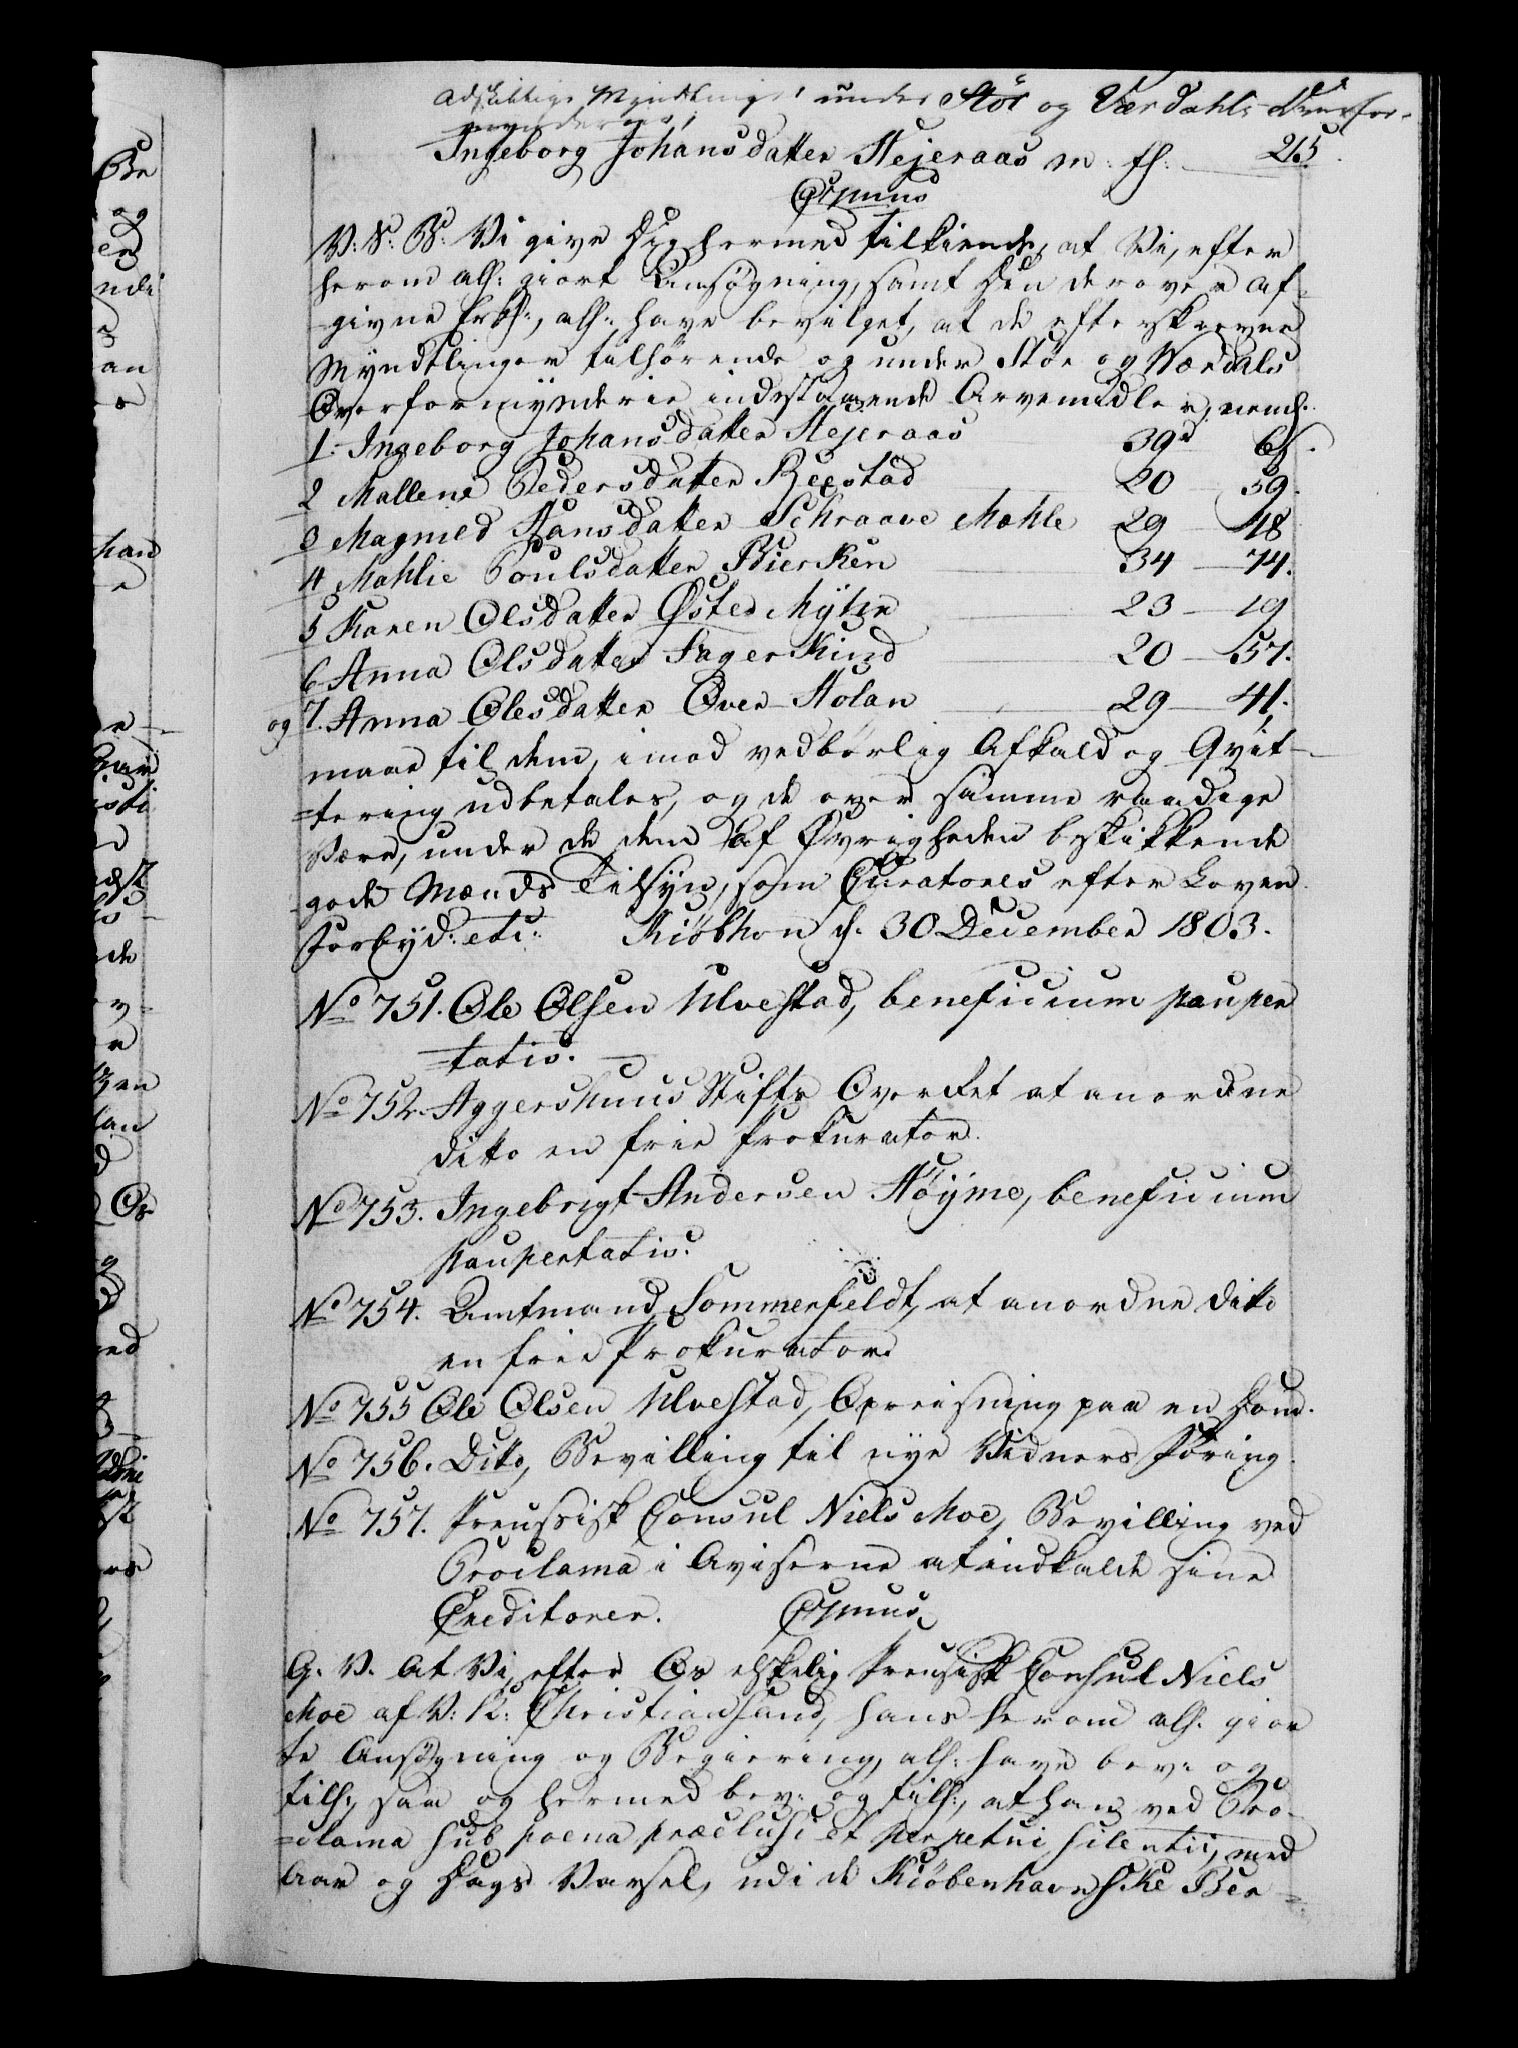 Adskillige Myndlinge under Stör og Værdahls Overfor-
mynderie,
Ingeborg Johansdatter Hejeraas m: fl: 265.
Gr̃mus
V: S: B: Vi give Dig hermed tilkiende, at Vi, efter
herom all: giort Ansøgning, samt Den derover af-
givne Erkl:, all: have bevilget, at de efterskrevne
Myndtlinger tilhørende og under Stör og Værdals
Overformynderie indestaaende Arvemidler, neml:
1: Ingeborg Johansdatter Hejeraas 39 rd 6 s.
2 Mallene Pedersdatter Rexstad 20 - 39.
3 Magnild Hansdatter Schraave Mæhle 29 - 48
4 Mahlie Poulsdatter Bierken 34 - 74.
5 Karen Olsdatter Øster Mÿhr 23 - 19
6 Anna Olsdatter Fager Kind 20 - 57.
og 7. Anna Olesdatter Over Holan 29 - 41.
maae til dem, imod vedbörlig Afkald og Qvit-
=tering udbetales, og de over samme raadige
være, under de dem af Øvrigheden beskikkende
gode Mænds Tilsÿn, som Curatores efter Loven.
Forbyd: etc: Kiøbhvn d. 30 December 1803.
No 751. Ole Olsen Ulvestad, beneficium pauper
=tatis.
No 752. Aggershuus Stifts Overret at anordne
ditto en frie Prokurator.
No 753. Ingebrigt Andersen Höÿme, beneficium
paupertatis.
No 754. Amtmand Sommerfeldt, at anordne ditto
en frie Prokurator.
No 755 Ole Olsen Ulvestad, Opreisning paa en Dom.
No 756. Ditto, Bevilling til nye Vidners Föring.
No 757. Preussisk Consul Niels Moe, Bevilling ved
Proclama i Aviserne at indkalde sine
Creditorer. Gr̃mus
G. V. At Vi, efter Os elskelig Preusisk Consul Niels
Moe af V: K: Christiansand, hans herom all. gior
te Ansøgning og Begiering, all: have bev: og
till:, saa og hermed bev: og till:, at han ved Pro-
=clama sub poena præclusi et perpetui silentii, med
Aar og Dags Varsel, udi de Kiöbenhavnske Ber-